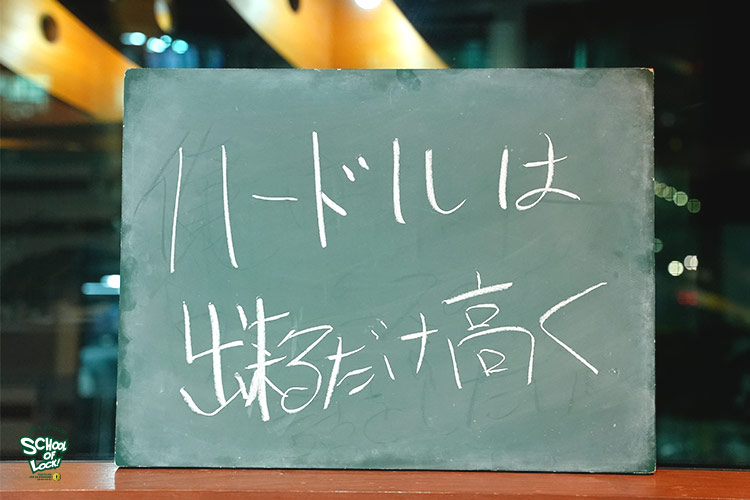 ハードルは
出来るだけ高く
SCHOOL
OF
LOCK!